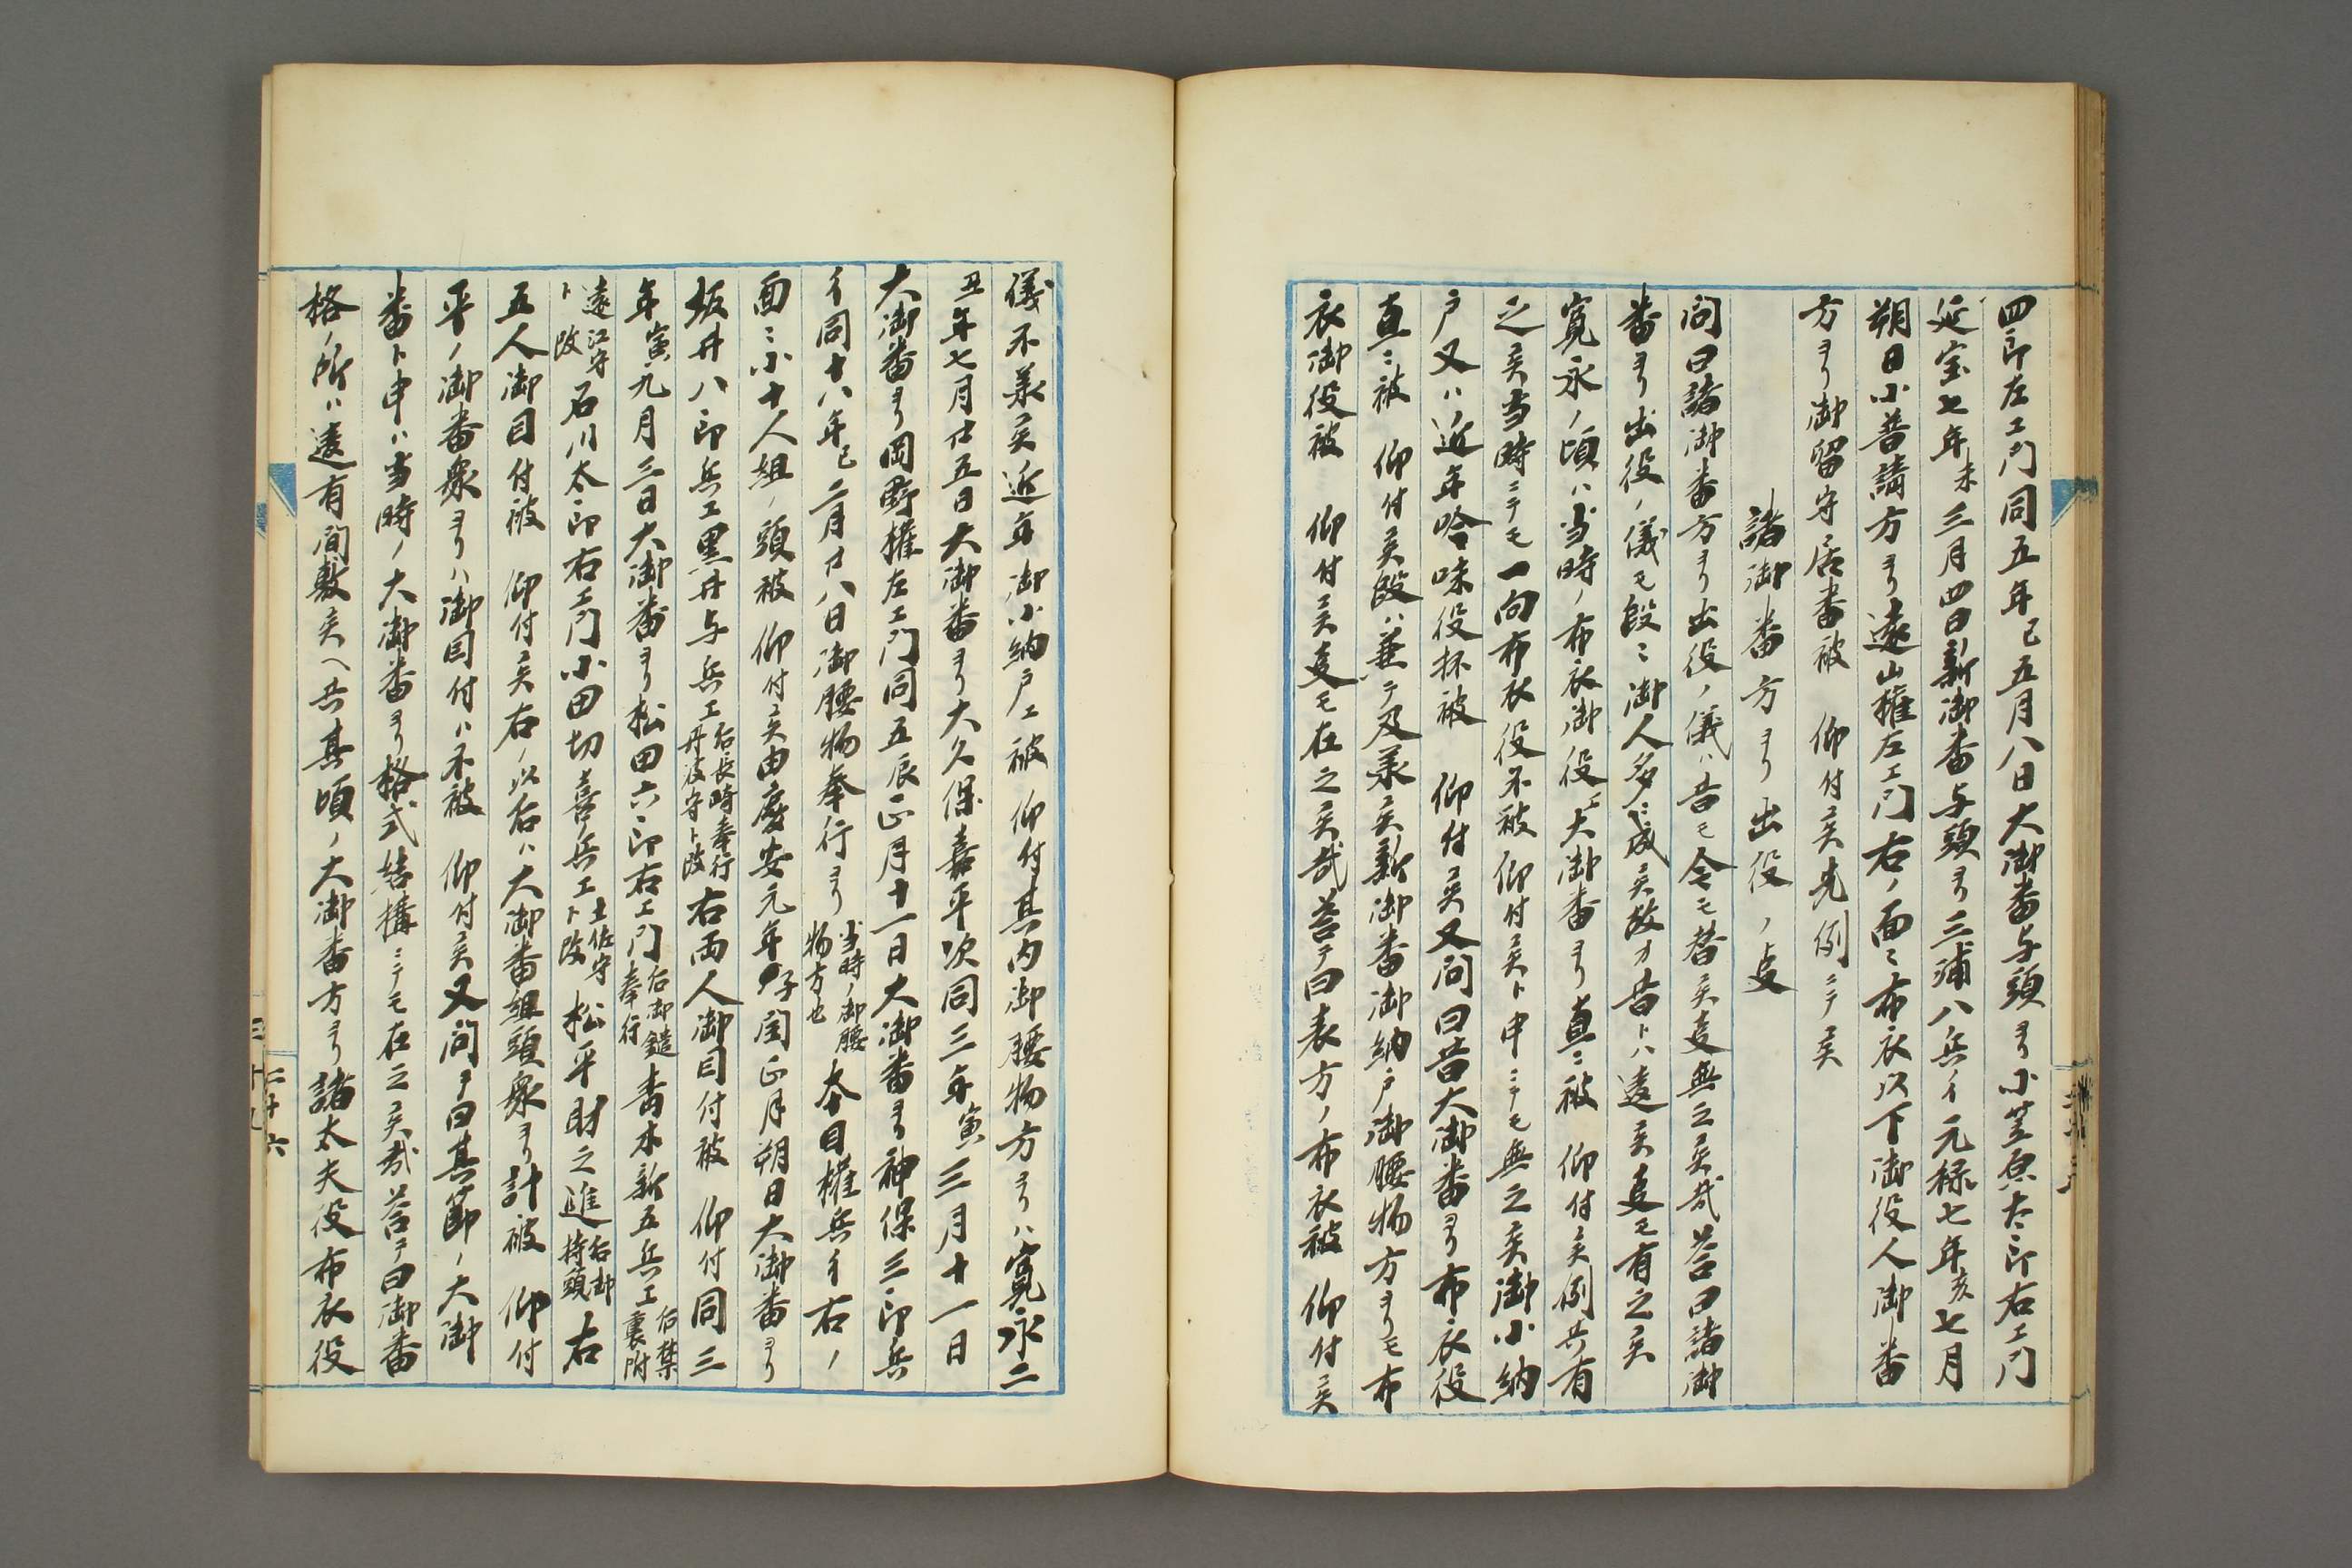 四郎左エ門同五年巳五月八日大御番与頭ヨリ小笠原太郎右エ門
延宝七年未三月四日新御番与頭ヨリ三浦八兵ヱ元禄七年亥七月
朔日小普請方ヨリ遠山権左エ門右ノ面ミ布衣以下御役人御番
方ヨリ御留守居番被　仰付候先例ニテ候
諸御番方ヨリ出役ノ夏
問曰諸御番方ヨリ出役ノ儀ハ昔モ今モ替候夏無之候哉答曰諸御
番ヨリ出役ノ儀モ段ミ御人多ニ成候故カ昔トハ違候夏モ有之候
寛永ノ頃ハ当時ノ布衣御役エ大御番ヨリ直ニ被　仰付候例共有
之候当時ニテモ一向布衣役不被　仰付候ト申ニテモ無之候御小納
戸又ハ近年吟味役抔被　仰付候又問曰昔大御番ヨリ布衣役
直ニ被　仰付候段ハ兼テ及承候新御番御納戸御腰物方ヨリモ布
衣御役被　仰付候夏モ在之候哉答テ曰表方ノ布衣被　仰付候
儀不承候近年御小納戸エ被　仰付其内御腰物方ヨリハ寛永二
丑年七月廿五日大御番ヨリ大久保嘉平次同三年寅三月十一日
大御番ヨリ岡野権左エ門同五辰正月十一日大御番ヨリ神保三郎兵
ヱ同十八年巳二月廿八日御腰物奉行ヨリ当時ノ御腰物方也本目権兵ヱ右ノ
面ミ小十人組ノ頭被　仰付候由慶安元年子閏正月朔日大御番ヨリ
坂井八郎兵エ黒井与兵エ后長崎奉行丹波守ト改右両人御目付被　仰付同三
年寅九月三日大御番ヨリ松田六郎右エ門后御鑓奉行青木新五兵エ后禁裏附
遠江守ト改石川太郎右エ門小田切喜兵エ土佐守ト改松平財之進后御持頭右
五人御目付被　仰付候右ノ以后ハ大御番組頭衆ヨリ計被　仰付
平ノ御番衆ヨリハ御目付ハ不被　仰付候又問テ曰其節ノ大御
番ト申ハ当時ノ大御番ヨリ格式結構ニテモ在之候哉答テ曰御番
格ノ所ハ違有間敷候ヘ共其頃ノ大御番方ヨリ諸太夫役布衣役